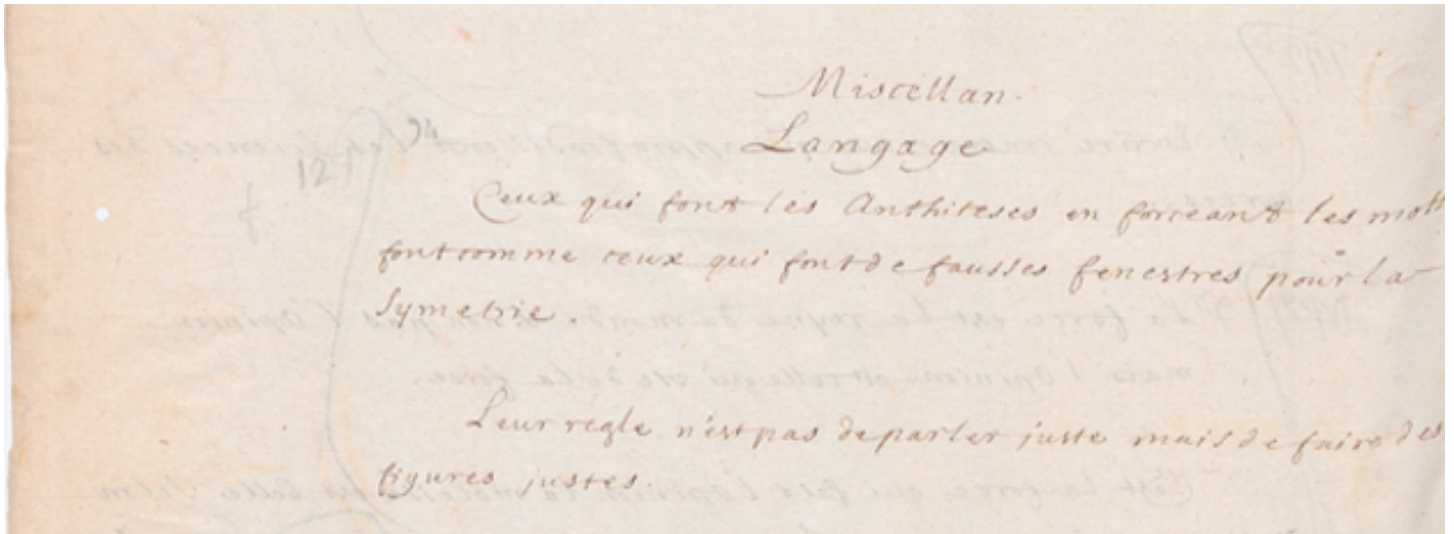 Miscellan.
Langage
Ceux qui font les Anthiteses en forceant les mots
font comme ceux qui font de fausses fenestres pour la
Symetrie.
Leur regle n'est pas de parler juste mais de faire des
figures justes.